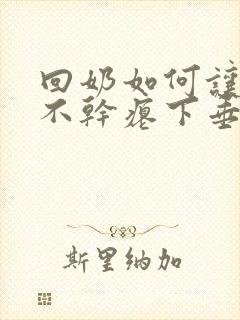 回奶如何讓
不幹癟下垂
斯里纳加